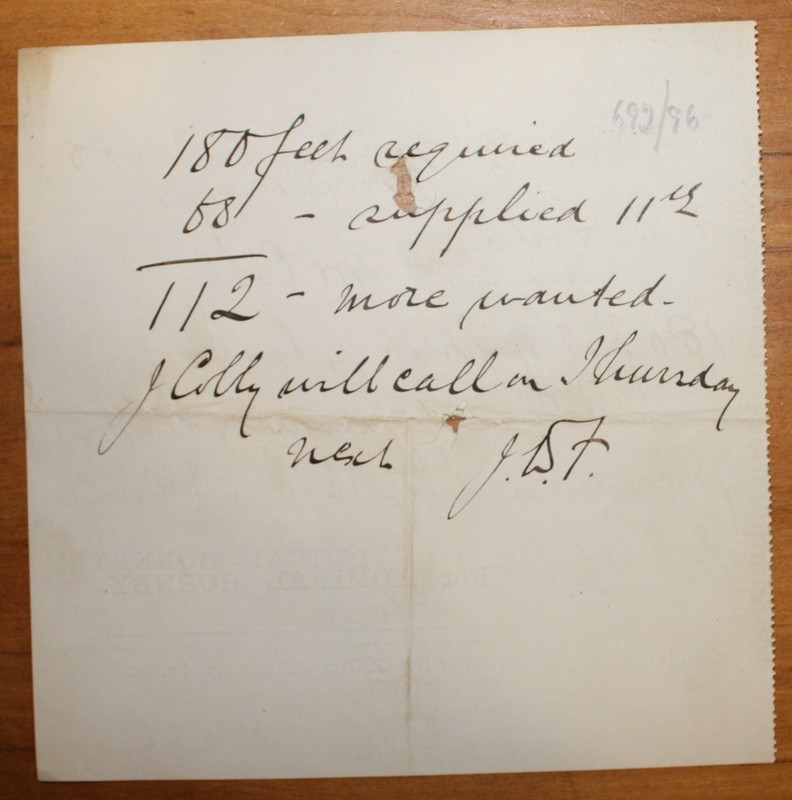 692/96
180 feet required
68 - supplied 11th
112 - more wanted-
J Colly will call on Thursday
next J.D.F.